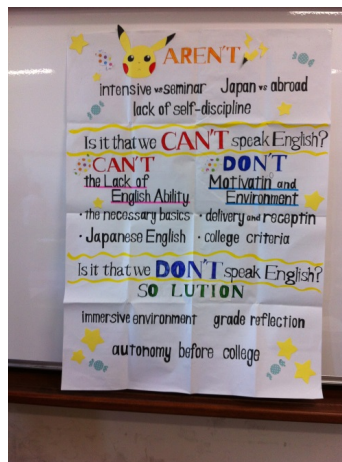 AREN'T
intensive vs seminar Japan vs abroad
lack of self-discipline
Is it that we CAN'T speak English?
CAN'T
the Lack of
English Ability
・the necessary basics
・Japanese English
DON'T
Motivatin and
Environment
・delivery and receptin
・college criteria
Is it that we DON'T speak English?
SO LUTION
immersive environment grade reflection
autonomy before college